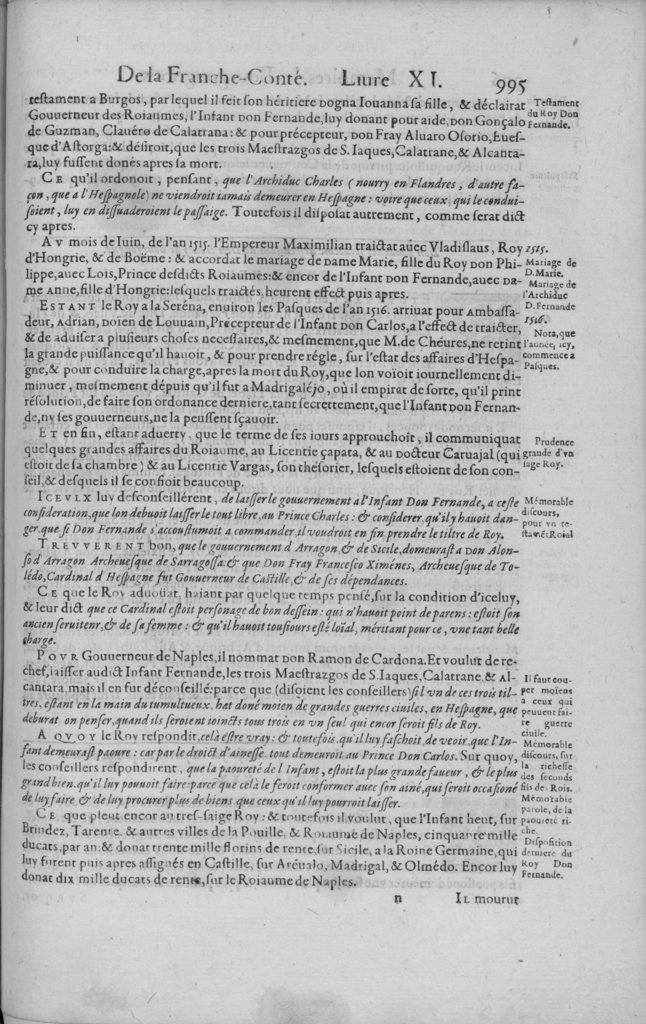 De la Franche-Conté. Liure XI. 995
testament a Burgos, par lequel il feit son héritiere Dogna Iouanna sa fille, & déclairat
Gouuerneur des Roiaumes, l'Infant Don Fernande, luy donant pour aide, Don Gonçalo
de Guzman, Clauéro de Calatrana: & pour précepteur, Don Fray Aluaro Osorio, Eues-
que d'Astorga: & désiroit, que les trois Maestrazgos de S. Iaques, Calatrane, & Alcanta-
ra, luy fussent donés apres sa mort.
Testament
du Roy Don
Fernande.
CE qu'il ordonoit, pensant, que l'Archiduc Charles (nourry en Flandres, d'autre fa-
çon, que a l'Hespagnole) ne viendroit iamais demeurer en Hespagne: voire que ceux, qui le condui-
soient, luy en dissuaderoient le passaige. Toutefois il disposat autrement, comme serat dict
cy apres.
AV mois de Iuin, de l'an 1515. l'Empereur Maximilian traictat auec Vladislaus, Roy
d'Hongrie, & de Boëme: & accordat le mariage de Dame Marie, fille du Roy Don Phi-
lippe, auec Lois, Prince desdicts Roiaumes: & encor de l'Infant Don Fernande, auec Da-
me Anne, fille d'Hongrie: lesquels traictés, heurent effect puis apres.
1515.
Mariage de
D. Marie.
Mariage de
l'Archiduc
D. Fernande
ESTANT le Roy a la Seréna, enuiron les Pasques de l'an 1516. arriuat pour Ambassa-
deur, Adrian, Doïen de Louuain, Precepteur de l'Infant Don Carlos, a l'effect de traicter,
& de aduiser a plusieurs choses necessaires, & mesmement, que M. de Chéures, ne retint
la grande puissance qu'il hauoit, & pour prendre régle, sur l'estat des affaires d'Hespa-
gne, & pour conduire la charge, apres la mort du Roy, que lon voïoit iournellement di-
minuer, mesmement dépuis qu'il fut a Madrigaléjo, où il empirat de sorte, qu'il print
résolution, de faire son ordonance derniere, tant secrettement, que l'Infant Don Fernan-
de, ny ses gouuerneurs, ne la peussent sçauoir.
1516.
Nota, que
l'année, icy,
commence a
Pasques.
ET en fin, estant aduerty, que le terme de ses iours approuchoit, il communiquat
quelques grandes affaires du Roiaume, au Licentie çapata, & au Docteur Caruajal (qui
estoit de sa chambre) & au Licentié Vargas, son thésorier, lesquels estoient de son con-
seil, & desquels il se confioit beaucoup.
Prudence
grande d'vn
sage Roy.
ICEVLX luy desconseillérent, de laisser le gouuernement a l'Infant Don Fernande, a ceste
consideration, que lon debuoit laisser le tout libre, au Prince Charles: & considerer, qu'il y hauoit dan-
ger, que si Don Fernande s'accoustumoit a commander, il voudroit en fin prendre le tiltre de Roy.
Mémorable
discours,
pour vn te-
stamét Roial
TREVVERENT bon, que le gouuernement d'Arragon, & de Sicile, demeurast a Don Alon-
so d'Arragon Archeuesque de Sarragossa: & que Don Fray Francesco Ximénes, Archeuesque de To-
lédo, Cardinal d'Hespagne fut Gouuerneur de Castille, & de ses dépendances.
CE que le Roy aduoüat, haiant par quelque temps pensé, sur la condition d'iceluy,
& leur dict que ce Cardinal estoit personage de bon dessein: qui n'hauoit point de parens: estoit son
ancien seruiteur, & de sa femme: & qu'il hauoit tousiours esté loïal, méritant pour ce, vne tant belle
charge.
POVR Gouuerneur de Naples, il nommat Don Ramon de Cardona. Et voulut de re-
chef, laisser audict Infant Fernande, les trois Maestrazgos de S. Iaques, Calatrane, & Al-
cantara, mais il en fut déconseillé: parce que (disoient les conseillers) si l'vn de ces trois til-
tres, estant en la main du tumultueux, hat doné moien de grandes guerres ciuiles, en Hespagne, que
deburat on penser, quand ils seroient ioincts tous trois en vn seul qui encor seroit fils de Roy.
Il faut cou-
per moïens
a ceux qui
peuuent fai-
re guerre
ciuile.
A QVOY le Roy respondit, celà estre vray: & toutefois, qu'il luy faschoit, de veoir, que l'In-
fant demeurast paoure: car par le droict d'ainesse, tout demeuroit au Prince Don Carlos. Sur quoy,
les conseillers respondirent, que la paoureté de l'Infant, estoit la plus grande faueur, & le plus
grand bien, qu'il luy pouuoit faire: parce que celà le feroit conformer auec son ainé, qui seroit occasioné
de luy faire, & de luy procurer plus de biens, que ceux qu'il luy pourroit laisser.
Mémorable
discours, sur
la richesse
des seconds
fils de Rois.
Mémorable
parole, de la
paoureté ri-
che.
CE que pleut encor au tres-saige Roy: & toutefois il voulut, que l'Infant heut, sur
Brindez, Tarente, & autres villes de la Pouille, & Roiaume de Naples, cinquante mille
ducats, par an: & donat trente mille florins de rente, sur Sicile, a la Roine Germaine, qui
luy furent puis apres assignés en Castille, sur Arénalo, Madrigal, & Olmédo. Encor luy
donat dix mille ducats de rente, sur le Roiaume de Naples.
Disposition
derniere du
Roy Don
Fernande.
n IL mourut